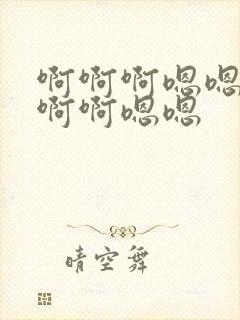 啊啊啊嗯嗯
啊啊嗯嗯
晴空舞